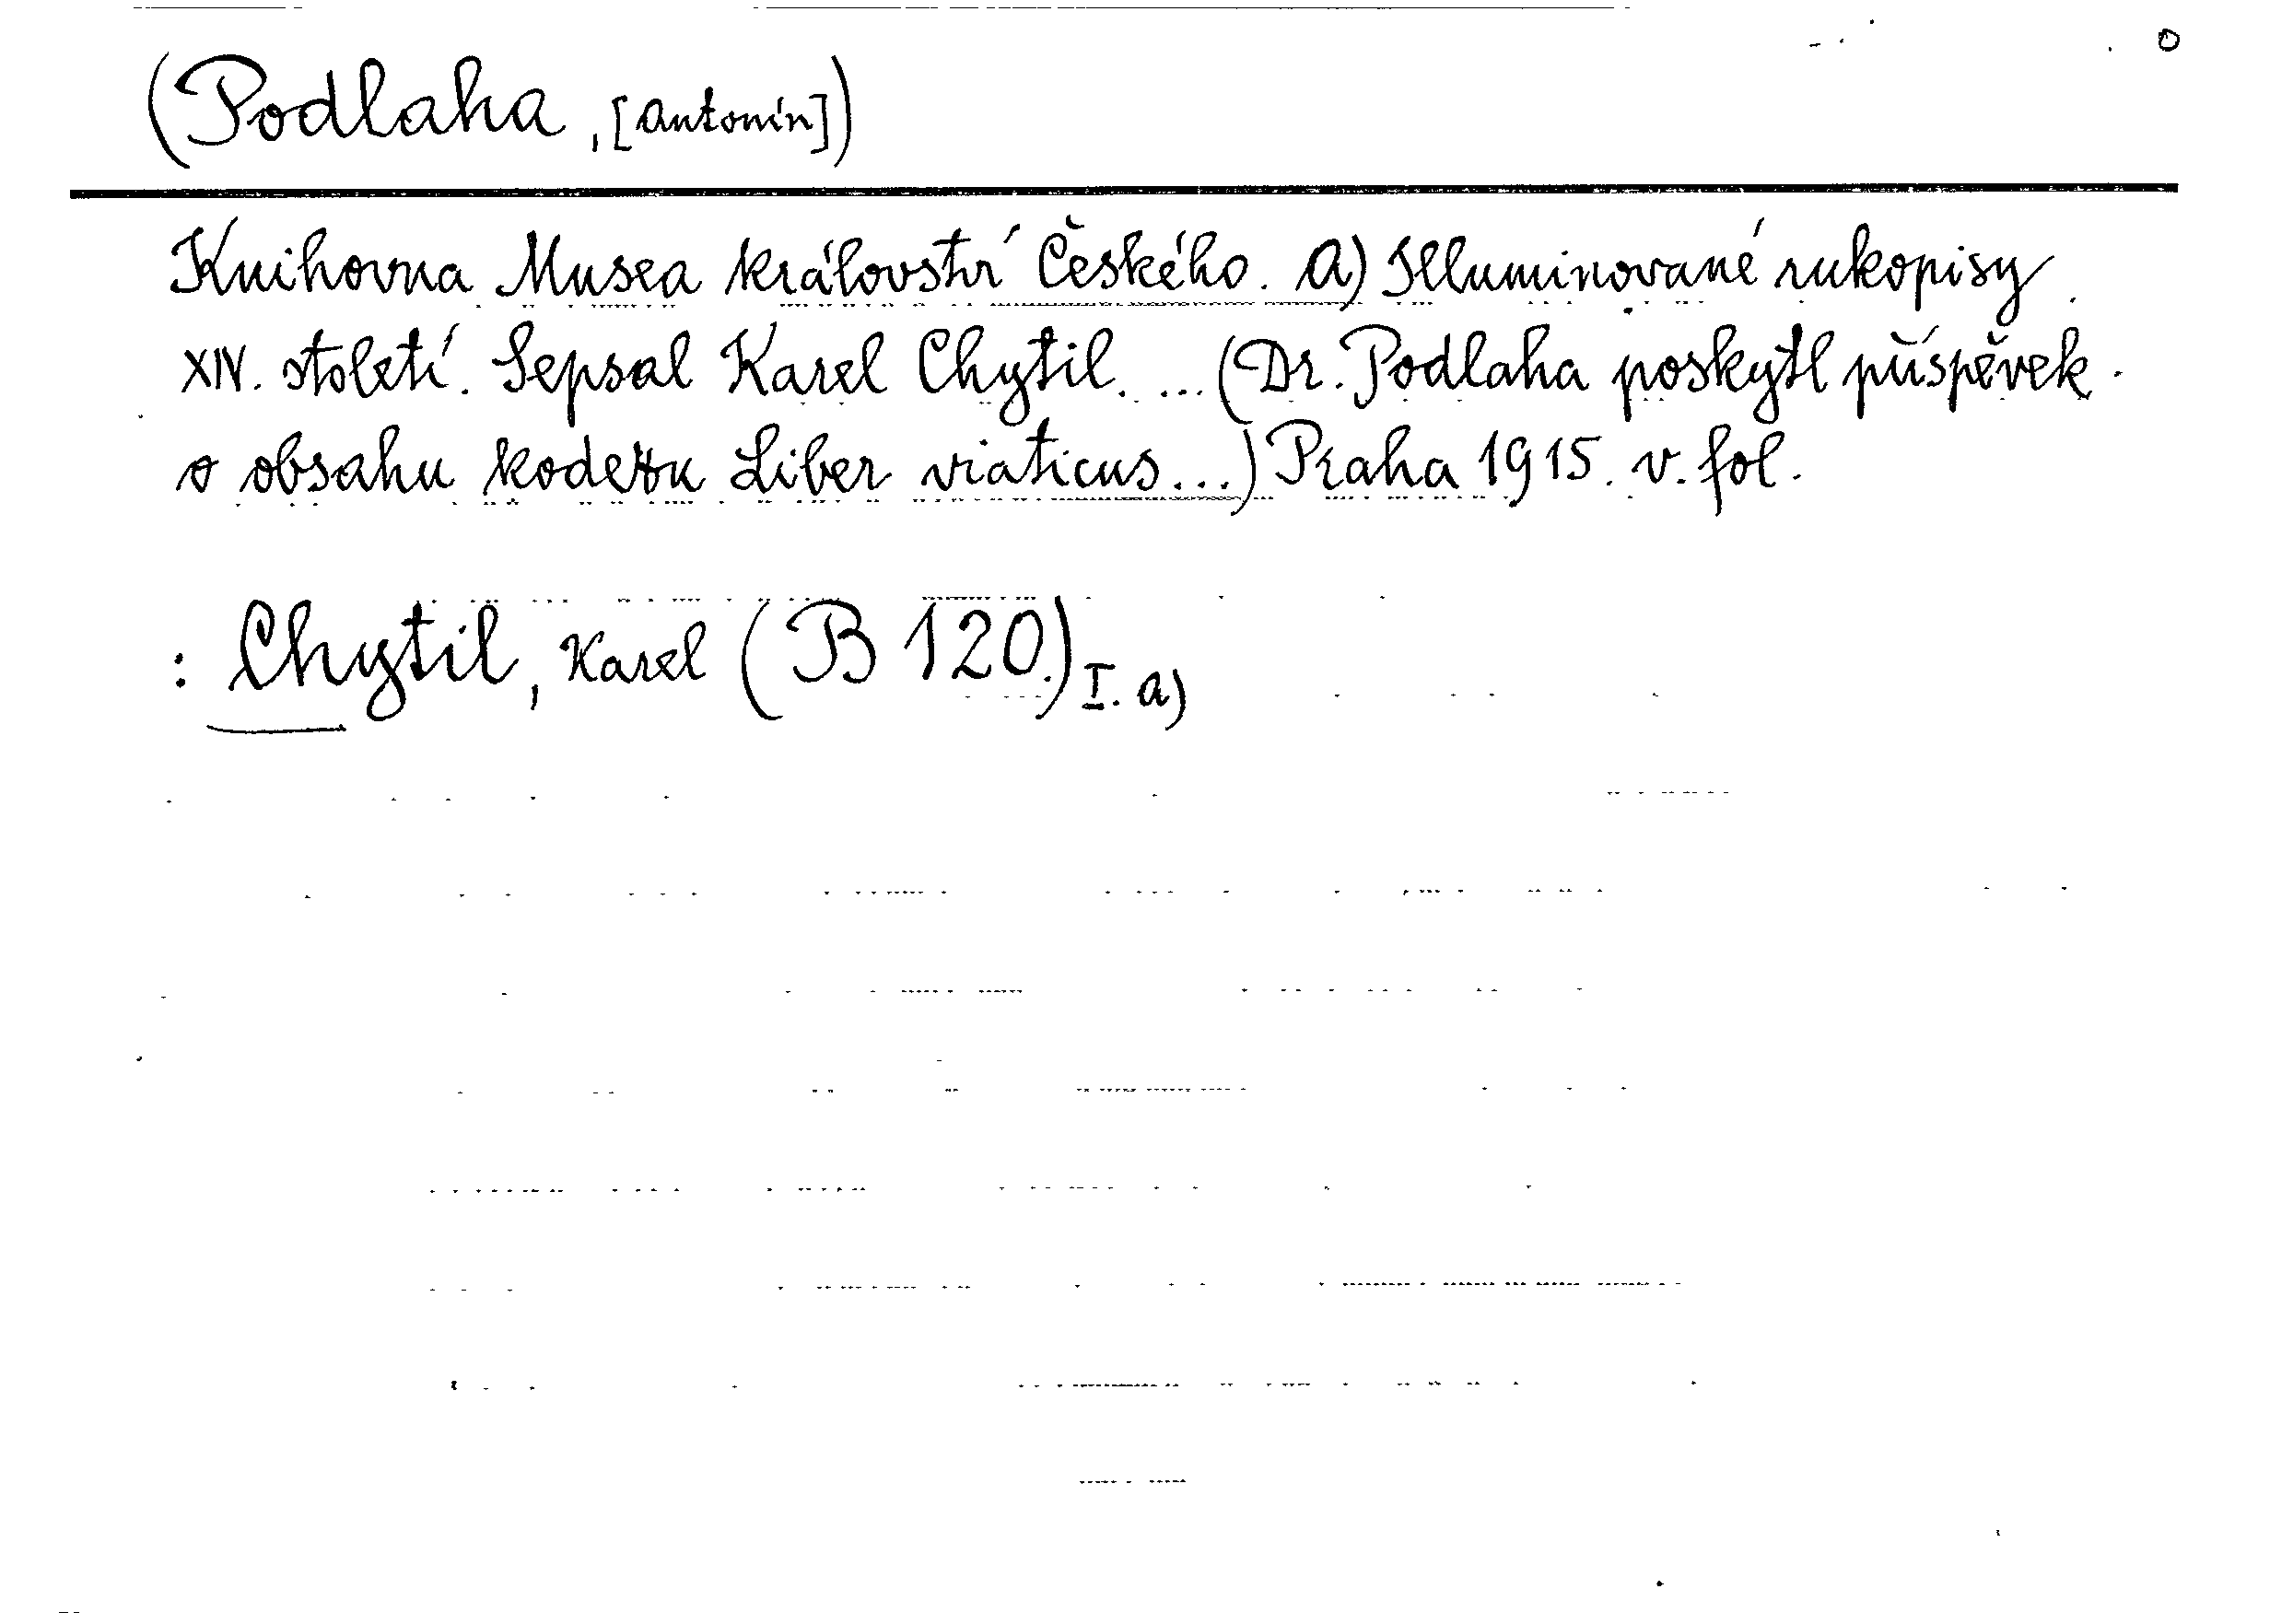 (Podlaha, [Antonín])
Knihovna Musea království Českého. A) Illuminované rukopisy
XIV. století. Sepsal Karel Chytil. ... (Dr. Podlaha poskytl příspěvek
o obsahu kodexu Liber viaticus...) Praha 1915. v. fol.
: Chytil, Karel (B 120.) I. a)